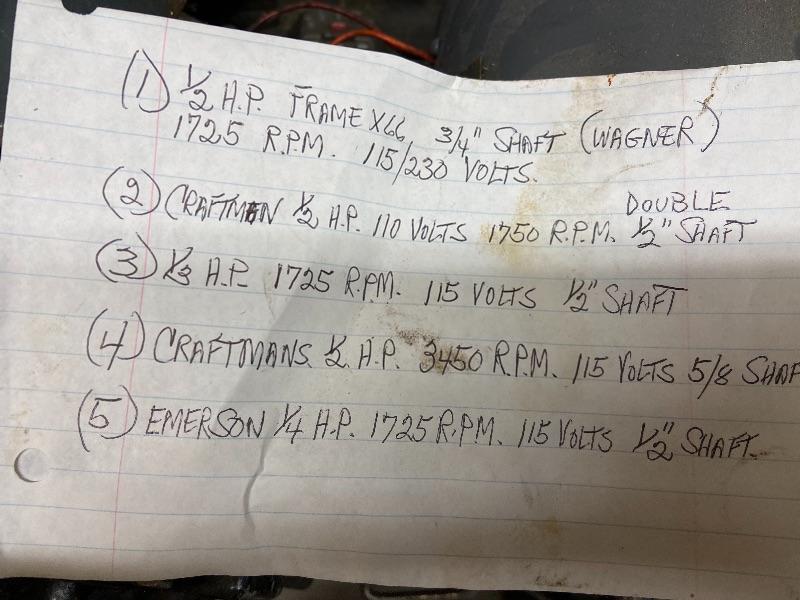 (1) 1/2 H.P. FRAME X66 3/4" SHAFT (WAGNER)
1725 R.P.M. 115/230 VOLTS.
DOUBLE
(2) CRAFTMAN 1/2 H.P. 110 VOLTS 1750 R.P.M. 1/2" SHAFT
(3) 1/3 H.P. 1725 R.P.M. 115 VOLTS 1/2" SHAFT
(4) CRAFTMANS 1/2 H.P. 3450 R.P.M. 115 VOLTS 5/8 SHAF
(5) EMERSON 1/4 H.P. 1725 R.P.M. 115 VOLTS 1/2" SHAFT.